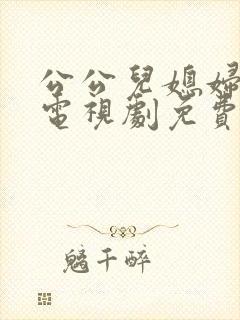 公公兒媳婦
電視劇免費
魑千醉